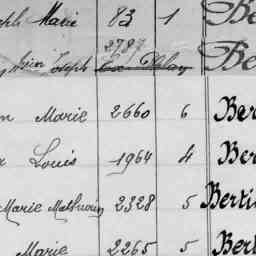 Marie 83 1 Be
2787
Joseph Be
Marie 2660 6 Ber
Louis 1964 4 Ber
Marie Mathurin 2328 5 Berti
Marie 2265 5 Bert